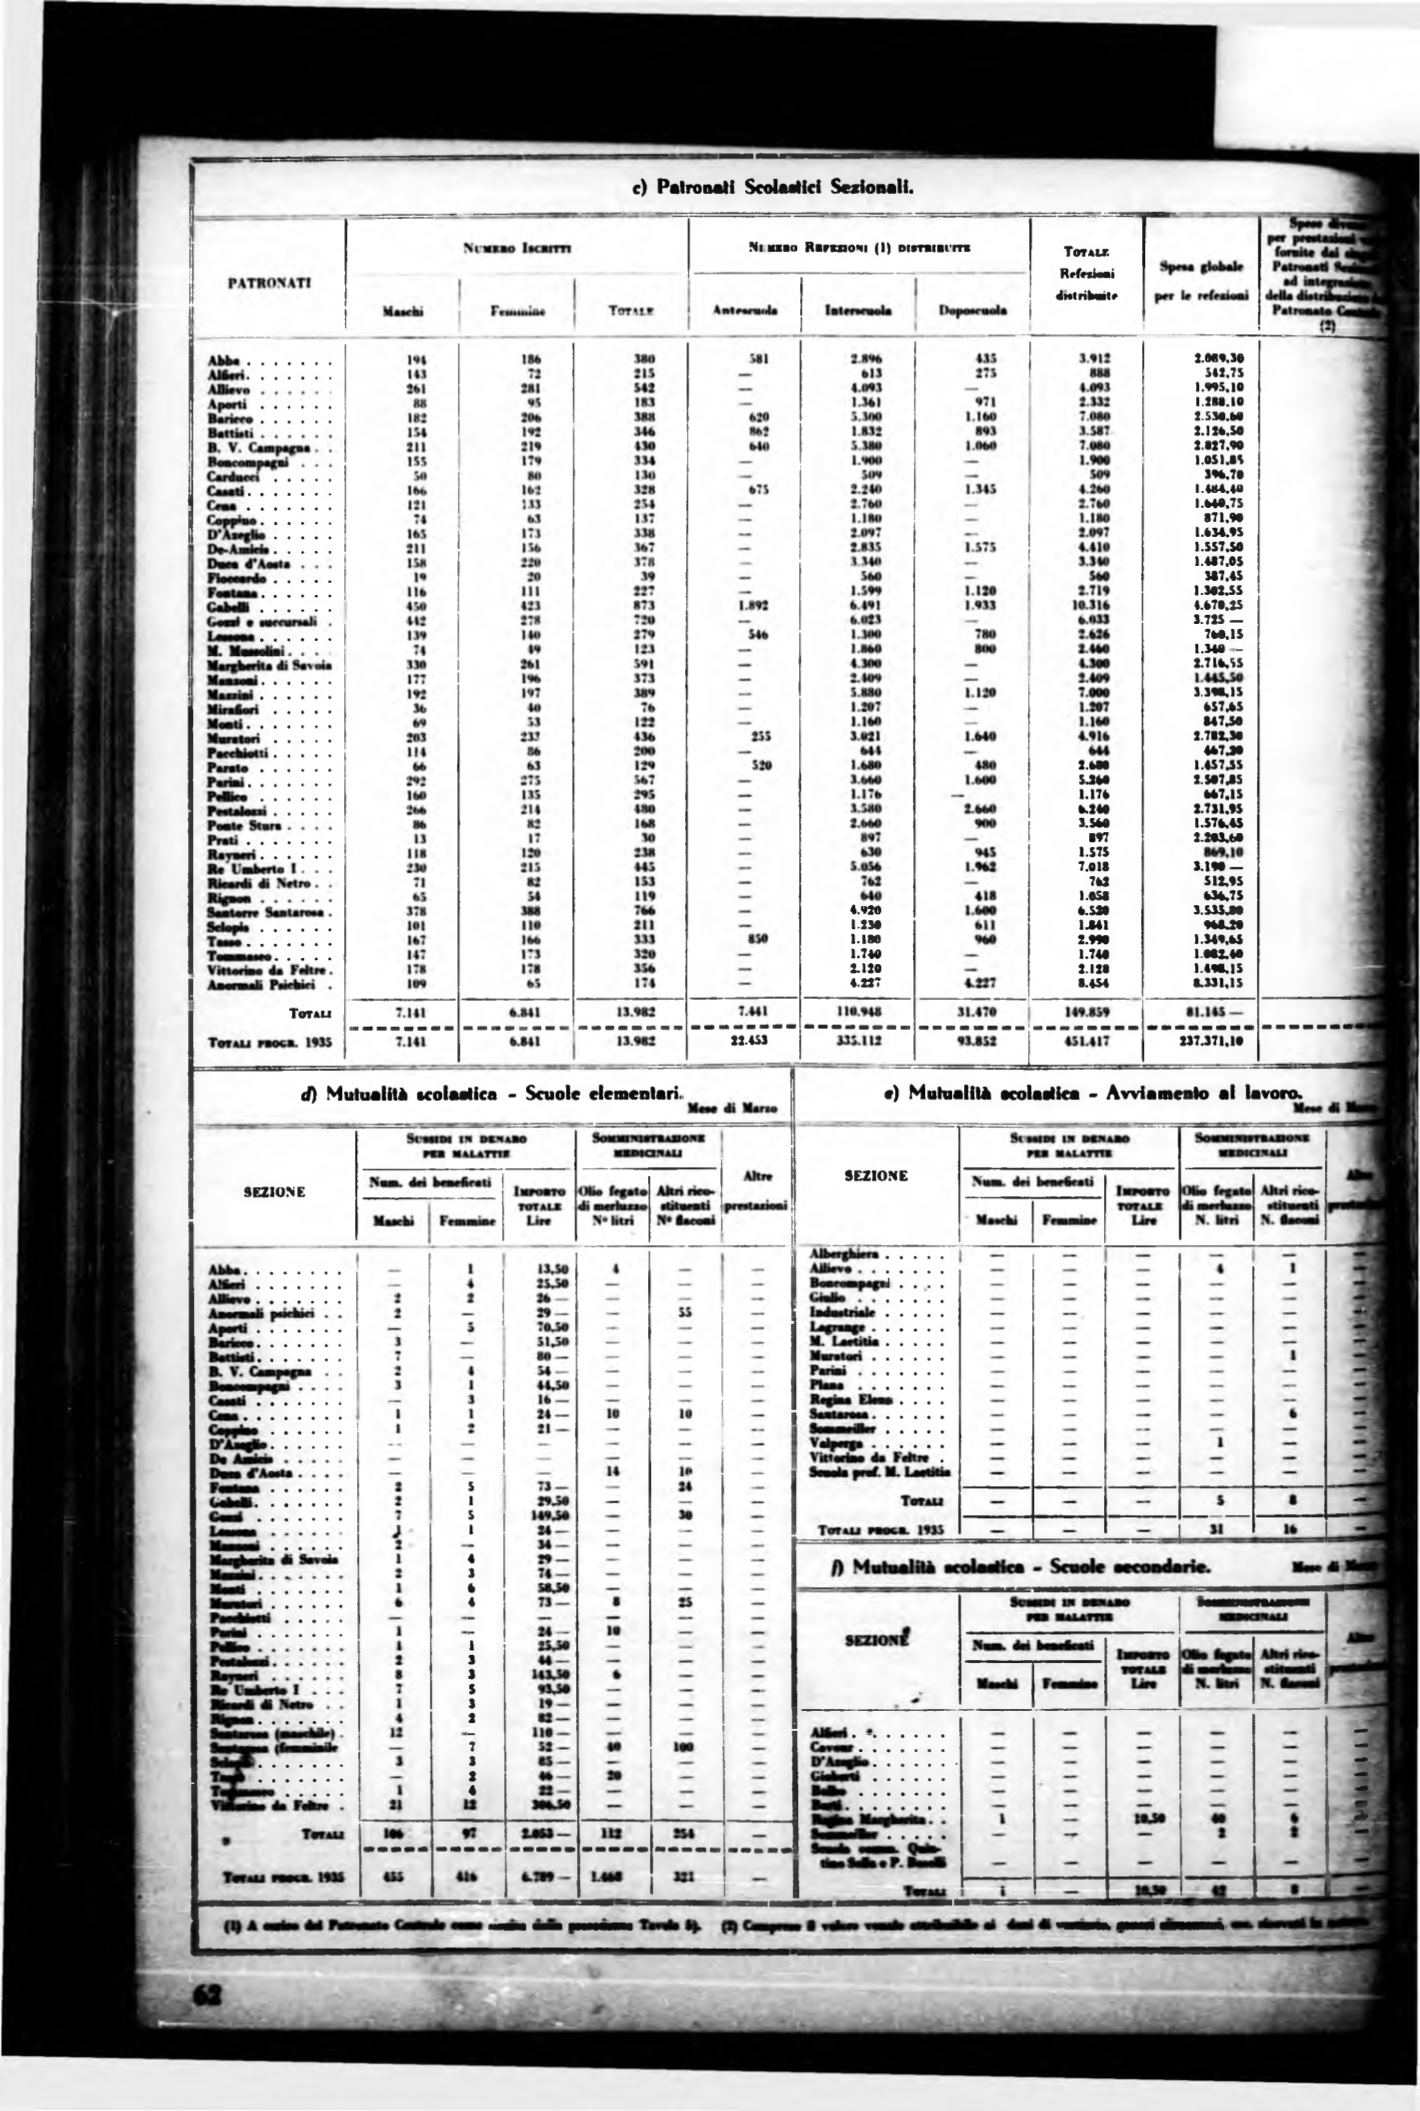 c) Patronati Scolastici Sezionali.
PATRONATI
NUMERO ISCRITTI
NUMERO REFEZIONI (1) DISTRIBUITE
TOTALE Refezioni distribuite
Spesa globale per le refezioni
Maschi Femmine TOTALE Antescuola Interscuola Doposcuola
per prestazioni
fornite dai
Patronati
ad
della
Patronato
(2)
Abba 194 186 380 581 2.896 435 3.912 2.089,30
Alfieri 143 72 215 — 613 275 888 542,75
Allievo 261 281 542 — 4.093 — 4.093 1.995,10
Aporti 88 95 183 — 1.361 971 2.332 1.288,10
Baricco 182 206 388 620 5.300 1.160 7.080 2.530,60
Battisti 154 192 346 862 1.832 893 3.587 2.126,50
B. V. Campagna 211 219 430 640 5.380 1.060 7.080 2.827,90
Boncompagni 155 179 334 — 1.900 — 1.900 1.051,85
Carducci 50 80 130 — 509 — 509 396,70
Casati 166 162 328 675 2.240 1.345 4.260 1.484,40
Cena 121 133 254 — 2.760 — 2.760 1.640,75
Coppino 74 63 137 — 1.180 — 1.180 871,90
D'Azeglio 165 173 338 — 2.097 — 2.097 1.634,95
De-Amicis 211 156 367 — 2.835 1.575 4.410 1.557,50
Duca d'Aosta 158 220 378 — 3.340 — 3.340 1.487,05
Fioccardo 19 20 39 — 560 — 560 387,45
Fontana 116 111 227 — 1.599 1.120 2.719 1.302,55
Gabelli 450 423 873 1.892 6.491 1.933 10.316 4.670,25
Gozzi e succursali 442 278 720 — 6.023 — 6.033 3.725 —
Lessona 139 140 279 546 1.300 780 2.626 760,15
M. Mussolini 74 49 123 — 1.860 800 2.460 1.340 —
Margherita di Savoia 330 261 591 — 4.300 — 4.300 2.716,55
Manzoni 177 196 373 — 2.409 — 2.409 1.445,50
Mazzini 192 197 389 — 5.880 1.120 7.000 3.398,15
Mirafiori 36 40 76 — 1.207 — 1.207 657,65
Monti 69 53 122 — 1.160 — 1.160 847,50
Muratori 203 233 436 255 3.021 1.640 4.916 2.782,30
Pacchiotti 114 86 200 — 644 — 644 467,20
Parato 66 63 129 520 1.680 480 2.680 1.457,55
Parini 292 275 567 — 3.660 1.600 5.260 2.507,85
Pellico 160 135 295 — 1.176 — 1.176 667,15
Pestalozzi 266 214 480 — 3.580 2.660 6.240 2.731,95
Ponte Stura 86 82 168 — 2.660 900 3.560 1.576,45
Prati 13 17 30 — 897 — 897 2.203,60
Rayneri 118 120 238 — 630 945 1.575 869,10
Re Umberto I 230 215 445 — 5.056 1.962 7.018 3.190 —
Ricardi di Netro 71 82 153 — 762 — 762 512,95
Rignon 65 54 119 — 640 418 1.058 636,75
Santorre Santarosa 378 388 766 — 4.920 1.600 6.520 3.535,80
Sclopis 101 110 211 — 1.230 611 1.841 968,20
Tasso 167 166 333 850 1.180 960 2.990 1.349,65
Tommaseo 147 173 320 — 1.740 — 1.740 1.082,40
Vittorino da Feltre 178 178 356 — 2.120 — 2.120 1.498,15
Anormali Psichici 109 65 174 — 4.227 4.227 8.454 8.331,15
TOTALI 7.141 6.841 13.982 7.441 110.948 31.470 149.859 81.145 —
TOTALI PROGR. 1935 7.141 6.841 13.982 22.453 335.112 93.852 451.417 237.371,10
d) Mutualità scolastica - Scuole elementari.
Mese di Marzo
SEZIONE
SUSSIDI IN DENARO PER MALATTIE
SOMMINISTRAZIONE MEDICINALI
Altre prestazioni
Num. dei beneficati
Maschi Femmine
IMPORTO TOTALE Lire
Olio fegato di merluzzo N° litri
Altri ricostituenti N° flaconi
Abba — 1 13,50 4 — —
Alfieri — 4 25,50 — — —
Allievo 2 2 26 — — — —
Anormali psichici 2 — 29 — — 55 —
Aporti — 5 70,50 — — —
Baricco 3 — 51,50 — — —
Battisti 7 — 80 — — — —
B. V. Campagna 2 4 54 — — — —
Boncompagni 3 1 44,50 — — —
Casati — 3 16 — — — —
Cena 1 1 24 — 10 10 —
Coppino 1 2 21 — — — —
D'Azeglio — — — — — —
De Amicis — — — — — —
Duca d'Aosta — — — 14 10 —
Fontana 2 5 73 — — 24 —
Gabelli 2 1 29,50 — — —
Gozzi 7 5 149,50 — 30 —
Lessona 1 1 24 — — — —
Manzoni 2 — 34 — — — —
Margherita di Savoia 1 4 29 — — — —
Mazzini 2 3 74 — — — —
Monti 1 6 58,50 — — —
Muratori 6 4 73 — 8 25 —
Pacchiotti — — — — — —
Parini 1 — 24 — 10 — —
Pellico 1 1 25,50 — — —
Pestalozzi 2 3 44 — — — —
Rayneri 8 3 143,50 6 — —
Re Umberto I 7 5 93,50 — — —
Ricardi di Netro 1 3 19 — — — —
Rignon 4 2 82 — — — —
Santarosa (maschile) 12 — 110 — — — —
Santarosa (femminile — 7 52 — 40 100 —
Sclopis 3 3 85 — — — —
— 2 46 — 20 — —
Tommaseo 1 4 22 — — — —
Vittorino da Feltre 21 12 306,50 — — —
TOTALI 106 97 2.053 — 112 254 —
TOTALI PROGR. 1935 455 416 6.789 — 1.468 321 —
e) Mutualità scolastica - Avviamento al lavoro.
Mese di
SEZIONE
SUSSIDI IN DENARO PER MALATTIE
SOMMINISTRAZIONE MEDICINALI
Num. dei beneficati
Maschi Femmine
IMPORTO TOTALE Lire
Olio fegato di merluzzo N. litri
Altri ricostituenti N. flaconi
Alberghiera — — — — — —
Allievo — — — 4 1 —
Boncompagni — — — — — —
Giulio — — — — — —
Industriale — — — — — —
Lagrange — — — — — —
M. Laetitia — — — — — —
Muratori — — — — 1 —
Parini — — — — — —
Plana — — — — — —
Regina Elena — — — — — —
Santarosa — — — — 6 —
Sommeiller — — — — — —
Valperga — — — 1 — —
Vittorino da Feltre — — — — — —
Scuola prof. M. Laetitia — — — — — —
TOTALI — — — 5 8 —
TOTALI PROGR. 1935 — — — 31 16 —
f) Mutualità scolastica - Scuole secondarie.
Mese di
SEZIONE
SUSSIDI IN DENARO PER MALATTIE
SOMMINISTRAZIONE MEDICINALI
Num. dei beneficati
Maschi Femmine
IMPORTO TOTALE Lire
Olio fegato di merluzzo N. litri
Altri ricostituenti N. flaconi
Alfieri — — — — — —
Cavour — — — — — —
D'Azeglio — — — — — —
Gioberti — — — — — —
Balbo — — — — — —
Berti — — — — — —
Regina Margherita 1 — 10,50 40 6 —
Sommeiller — — — 2 2 —
Scuola comm. Quintino Sella e P. Boselli — — — — — —
TOTALI 1 — 10,50 42 8 —
(1) A carico del Patronato Centrale come risulta dalla precedente Tavola b). (2) Compreso il valore venale attribuibile ai doni di vestiario, generi alimentari, ecc.
62